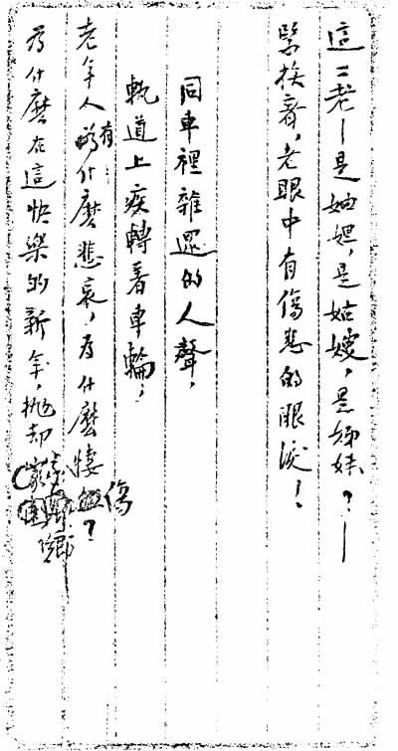 這二老——是妯娌，是姑嫂，是姊妹？——
緊挨着，老眼中有傷悲的眼淚！
同車裡雜遝的人聲，
軌道上疾轉着車輪；
老年人有什麼悲哀，為什麼悽傷？
為什麼在這快樂的新年，拋却家鄉